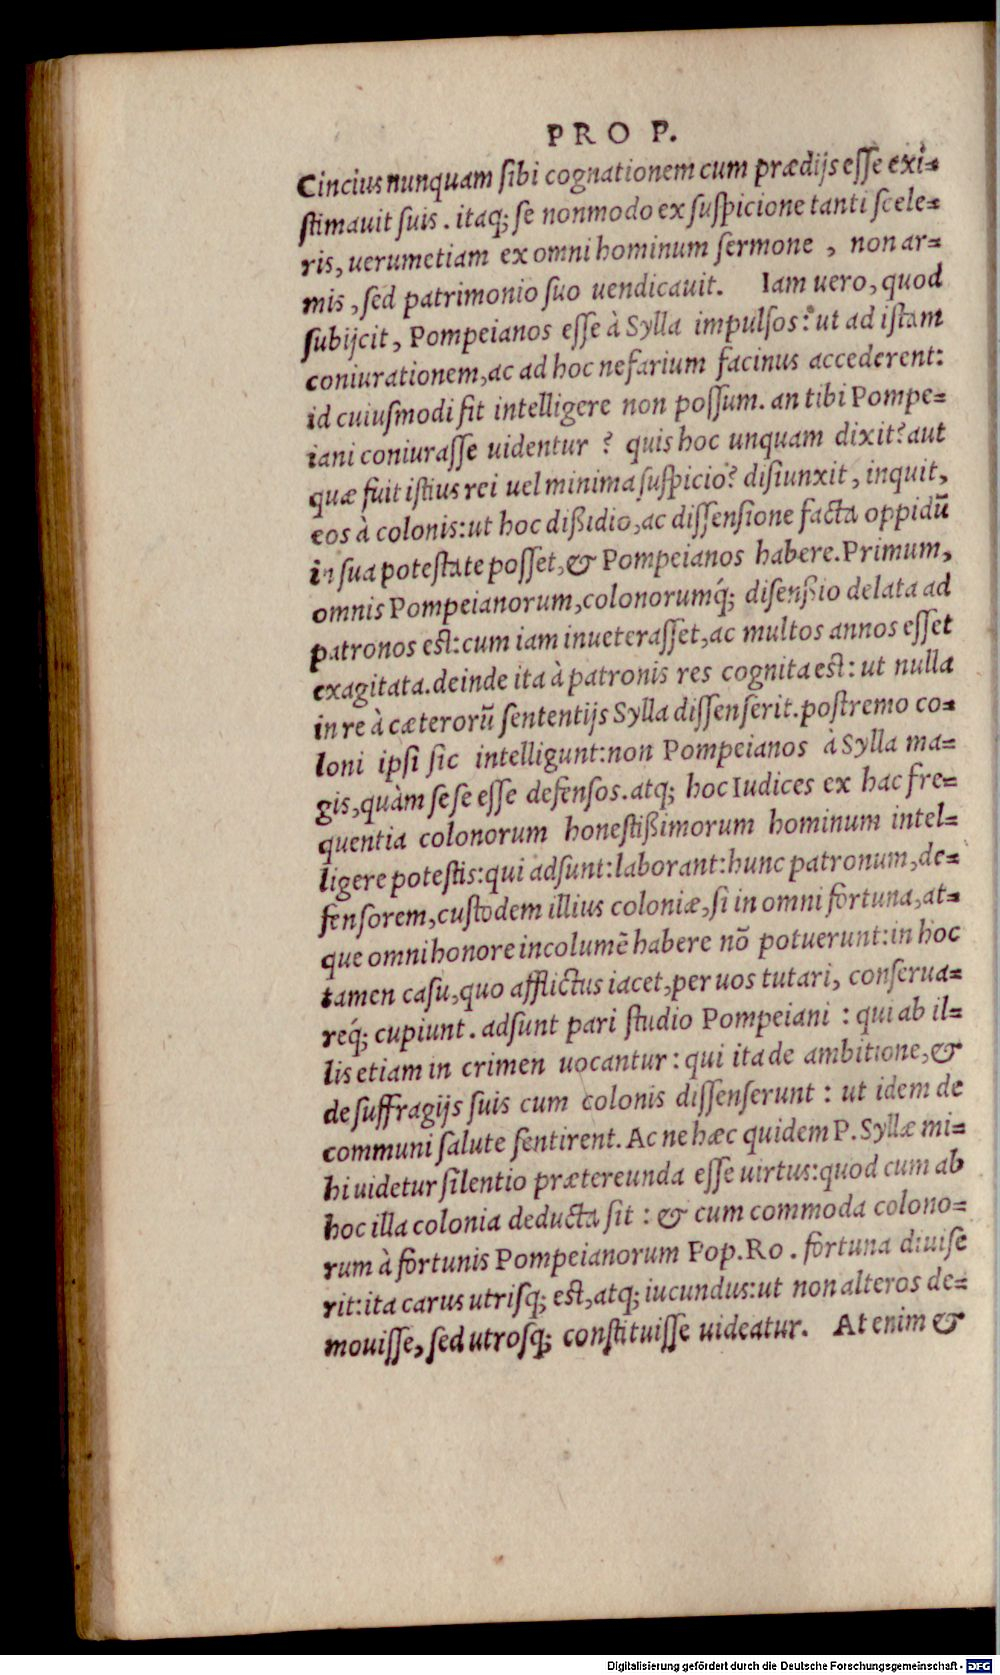 PRO P.
Cincius nunquam sibi cognationem cum prædijs esse exi=
stimauit suis. itaq; se nonmodo ex suspicione tanti scele=
ris, uerumetiam ex omni hominum sermone , non ar=
mis, sed patrimonio suo uendicauit. Iam uero, quod
subijcit, Pompeianos esse à Sylla impulsos: ut ad istam
coniurationem, ac ad hoc nefarium facinus accederent:
id cuiusmodi sit intelligere non possum. an tibi Pompe=
iani coniurasse uidentur ? quis hoc unquam dixit? aut
quæ fuit istius rei uel minima suspicio? disiunxit, inquit,
eos à colonis: ut hoc dißidio, ac dissensione facta oppidū
in sua potestate posset, & Pompeianos habere. Primum,
omnis Pompeianorum, colonorumq́; disenßio delata ad
patronos est: cum iam inueterasset, ac multos annos esset
exagitata. deinde ita à patronis res cognita est: ut nulla
in re à cæterorū sententijs Sylla dissenserit. postremo co=
loni ipsi sic intelligunt: non Pompeianos à Sylla ma=
gis, quàm sese esse defensos. atq; hoc Iudices ex hac fre=
quentia colonorum honestißimorum hominum intel=
ligere potestis: qui adsunt: laborant: hunc patronum, de=
fensorem, custodem illius coloniæ, si in omni fortuna, at=
que omni honore incolumē habere nō potuerunt: in hoc
tamen casu, quo afflictus iacet, per uos tutari, conserua=
req́; cupiunt. adsunt pari studio Pompeiani : qui ab il=
lis etiam in crimen uocantur: qui ita de ambitione, &
de suffragijs suis cum colonis dissenserunt : ut idem de
communi salute sentirent. Ac ne hæc quidem P. Syllæ mi=
hi uidetur silentio prætereunda esse uirtus: quod cum ab
hoc illa colonia deducta sit : & cum commoda colono=
rum à fortunis Pompeianorum Pop. Ro. fortuna diuise
rit: ita carus utrisq; est, atq; iucundus: ut non alteros de=
mouisse, sed utrosq; constituisse uideatur. At enim &
Digitalisierung gefördert durch die Deutsche Forschungsgemeinschaft - DFG